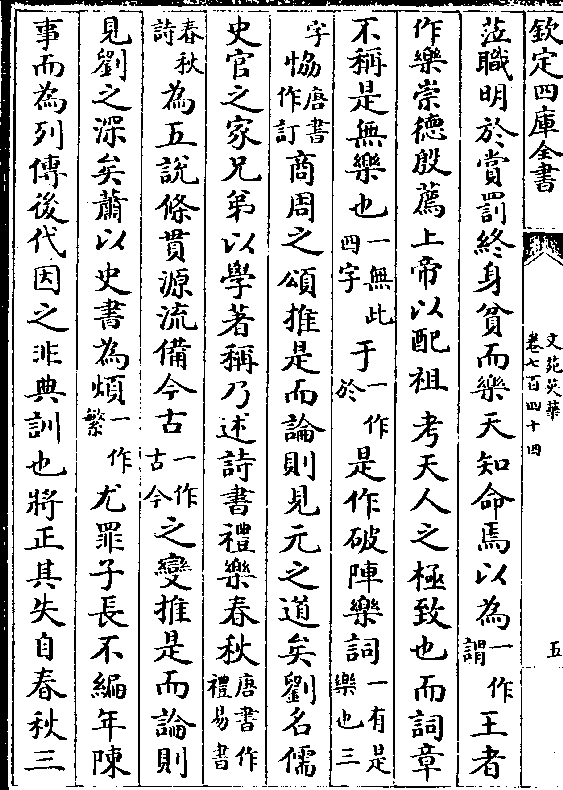 欽定四庫全書
文苑英華
卷七百四十四
五
蒞職明於賞罰終身貧而樂天知命焉以為一作謂王者
作樂崇德殷薦上帝以配祖考天人之極致也而詞章
不稱是無樂也一無此四字于一作於是作破陣樂詞一有是樂也三
字協唐書作訂商周之頌推是而論則見元之道矣劉名儒
史官之家兄弟以學著稱乃述詩書禮樂春秋唐書作禮易書
春秋詩為五說條貫源流備今古一作古今之變推是而論則
見劉之深矣蕭以史書為煩一作繁尤罪子長不編年陳
事而為列傳後代因之非典訓也將正其失自春秋三